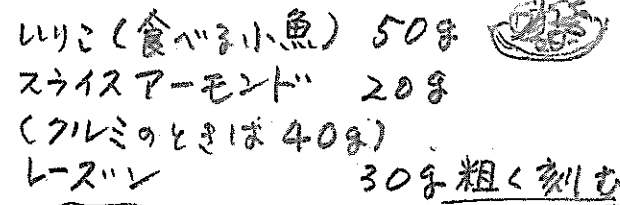 いりこ(食べる小魚) 50g
スライスアーモンド 20g
(クルミのときは 40g)
レーズン 30g 粗く刻む